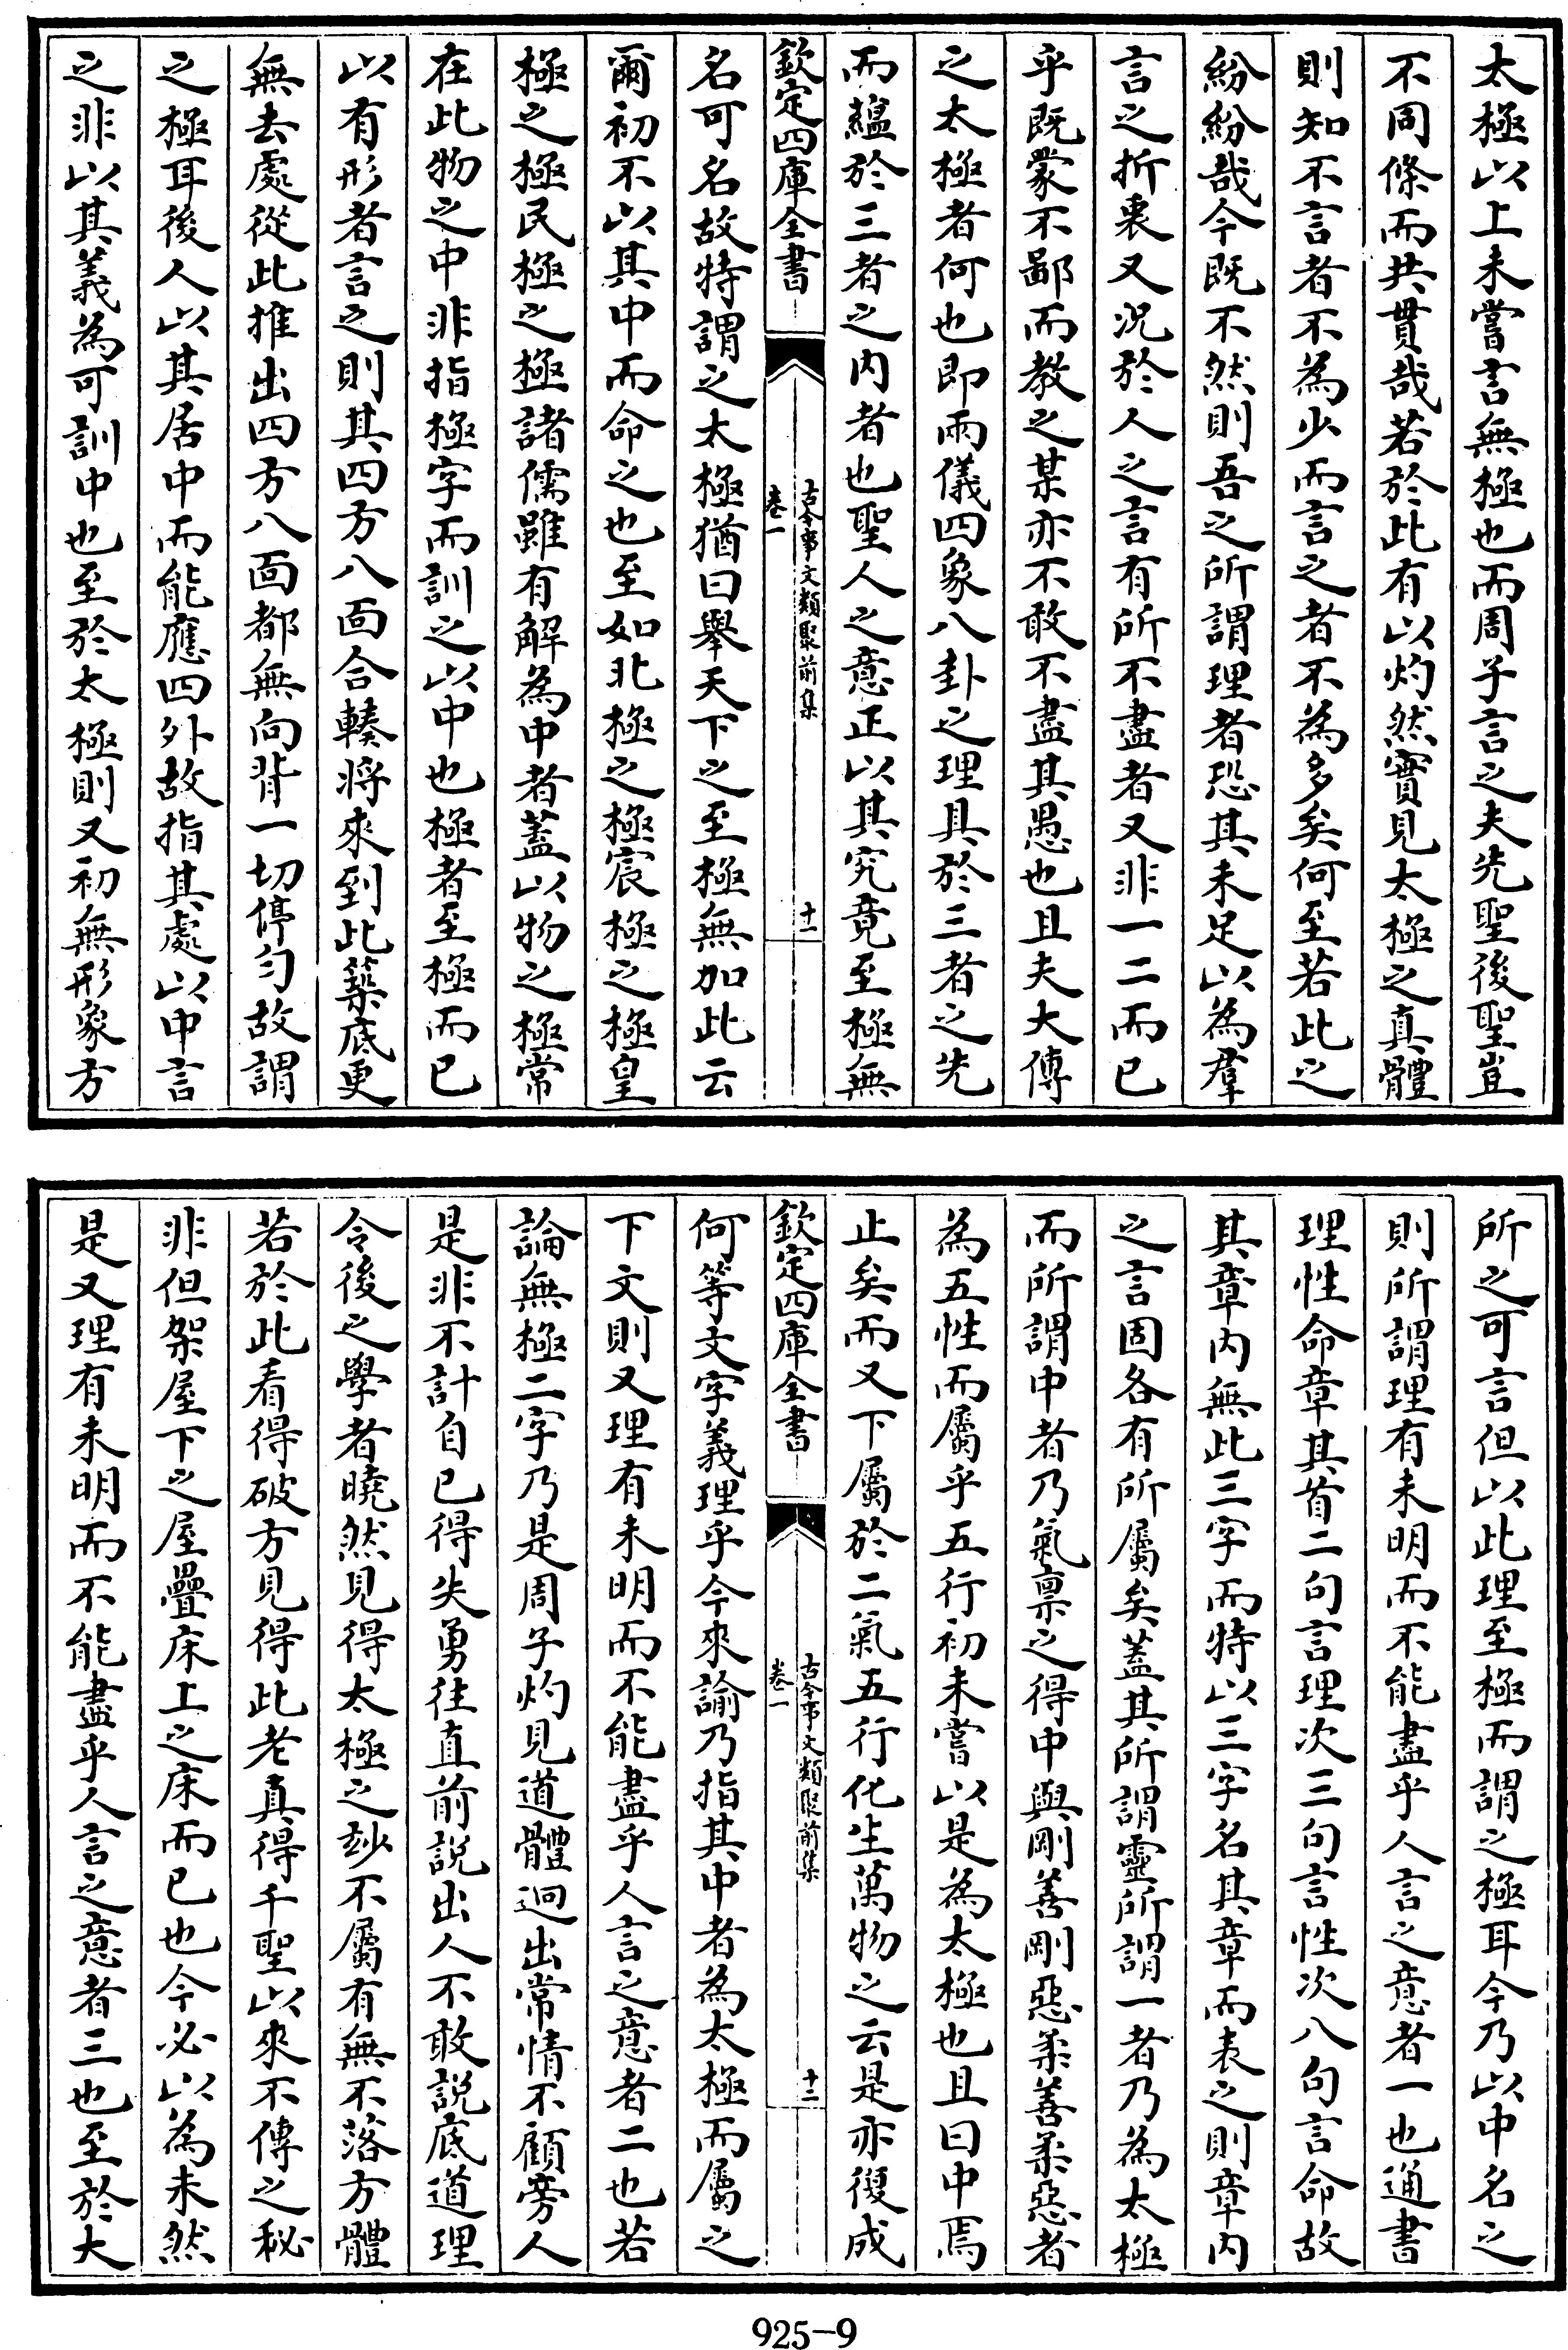 太極以上未嘗言無極也而周子言之夫先聖後聖豈
不同條而共貫哉若於此有以灼然實見太極之真體
則知不言者不為少而言之者不為多矣何至若此之
紛紛哉今既不然則吾之所謂理者恐其未足以為羣
言之折衷又況於人之言有所不盡者又非一二而已
乎既蒙不鄙而教之某亦不敢不盡其愚也且夫大傳
之太極者何也即兩儀四象八卦之理具於三者之先
而蘊於三者之内者也聖人之意正以其究竟至極無
欽定四庫全書
古今事文類聚前集
卷一
十一
名可名故特謂之太極猶曰舉天下之至極無加此云
爾初不以其中而命之也至如北極之極宸極之極皇
極之極民極之極諸儒雖有解為中者蓋以物之極常
在此物之中非指極字而訓之以中也極者至極而已
以有形者言之則其四方八面合輳將來到此築底更
無去處從此推出四方八面都無向背一切停匀故謂
之極耳後人以其居中而能應四外故指其處以中言
之非以其義為可訓中也至於太極則又初無形象方
所之可言但以此理至極而謂之極耳今乃以中名之
則所謂理有未明而不能盡乎人言之意者一也通書
理性命章其首二句言理次三句言性次八句言命故
其章内無此三字而特以三字名其章而表之則章内
之言固各有所屬矣蓋其所謂靈所謂一者乃為太極
而所謂中者乃氣禀之得中與剛善剛惡柔善柔惡者
為五性而屬乎五行初未嘗以是為太極也且曰中焉
止矣而又下屬於二氣五行化生萬物之云是亦復成
欽定四庫全書
古今事文類聚前集
卷一
十二
何等文字義理乎今來諭乃指其中者為太極而屬之
下文則又理有未明而不能盡乎人言之意者二也若
論無極二字乃是周子灼見道體迥出常情不顧旁人
是非不計自已得失勇往直前說出人不敢說底道理
令後之學者曉然見得太極之玅不屬有無不落方體
若於此看得破方見得此老真得千聖以來不傳之秘
非但架屋下之屋疊床上之床而已也今必以為未然
是又理有未明而不能盡乎人言之意者三也至於大
925-9